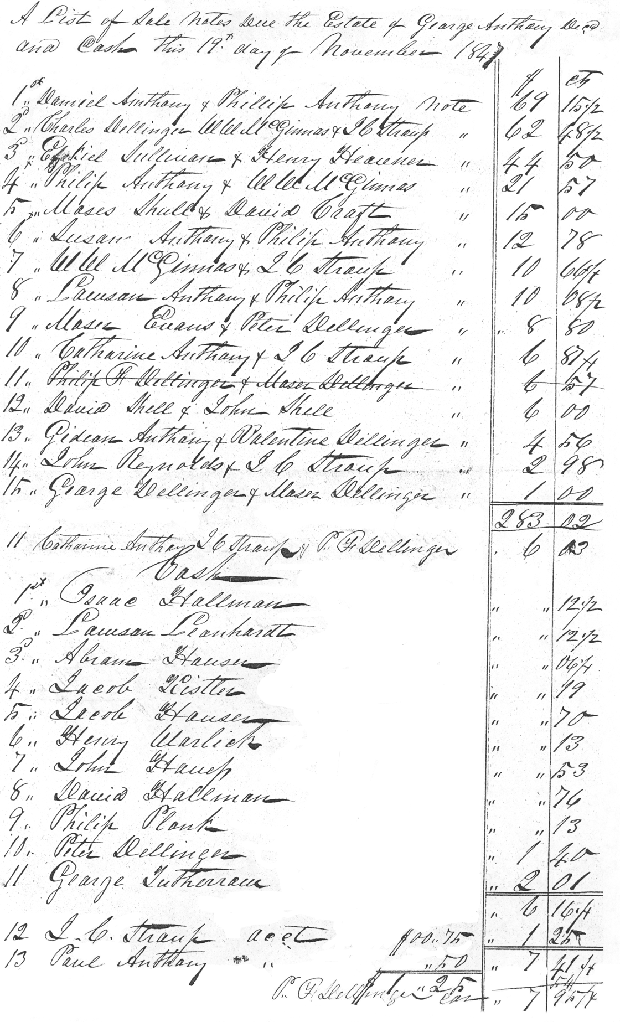 A List of Sale Notes Due the Estate of George Anthony Decd
and Cash this 19th day of November 1847
$ cts
1st Daniel Anthony & Phillip Anthony Note 69 15 1/2
2d " Charles Dellinger W W McGinnas & J C Straup " 62 48 1/2
3d " Ezekiel Sullivan & Henry Heavner " 44 50
4 " Philip Anthony & W W McGinnas " 21 57
5 " Mases Shull & David Craft " 15 00
6 " Susan Anthony & Philip Anthony " 12 78
7 " W W McGinnas & J C Straup " 10 66 1/4
8 " Lawsan Anthony & Philip Anthony " 10 08 1/2
9 " Mases Evans & Peter Dellinger " " 8 80
10 " Catharine Anthony & J C Straup " 6 81 1/4
11 " Philip F Dellinger & Mases Dellinger " 6 57
12 " David Shell & John Shell " 6 00
13 " Gidean Anthony & Valentine Dellinger " 4 56
14 " John Reynolds & J C Straup " 2 98
15 " Gearge Dellinger & Mases Dellinger " 1 00
283 02
11 Catharine Anthony J C Straup & P. F. Dellinger " 6 03
Cash
1st " Isaac Hallman " " 12 1/2
2d " Lawsan Leanhardt " " 12 1/2
3d " Abram Hauser " " 06 1/4
4 " Jacob Kistler " " 19
5 " Jacob Hauser " " 70
6 " Henry Warlick " " 13
7 " John Hauss " " 53
8 " David Hallman " " 76
9 " Philip Plank " " 13
10 " Peter Dellinger " 1 40
11 Gearge " 2 01
" 6 16 1/4
12 J. C. Straup acct $00.75 " 1 25
13 Paul Anthony " " " 50 " 7 41 1/4
P. F. Dellinger 1 " 25 54
" 7 95 1/4